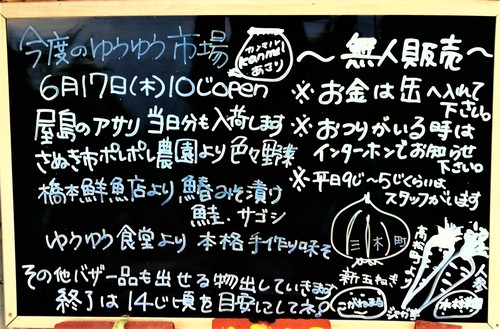 今度のゆうゆう市場
カンマイル
kanmai
あさり
6月17日(木)10じopen
屋島のアサリ当日分も入荷します
さぬき市ポレポレ農園より色々野菜
橋本鮮魚店より鰆みそ漬け
鮭、サゴシ
ゆうゆう食堂より本格手作り味そ
その他バザー品も出せる物出していきます
終了は14じ頃を目安にしてネ♪
〜無人販売〜
※お金は缶へ入れて
下さい。
※おつりがいる時は
インターホンでお知らせ
下さい。
※平日9じ〜5じくらいは
スタッフがいます
三木町
新玉ねぎ
こがねまる
高松町より
じゃが芋
人参